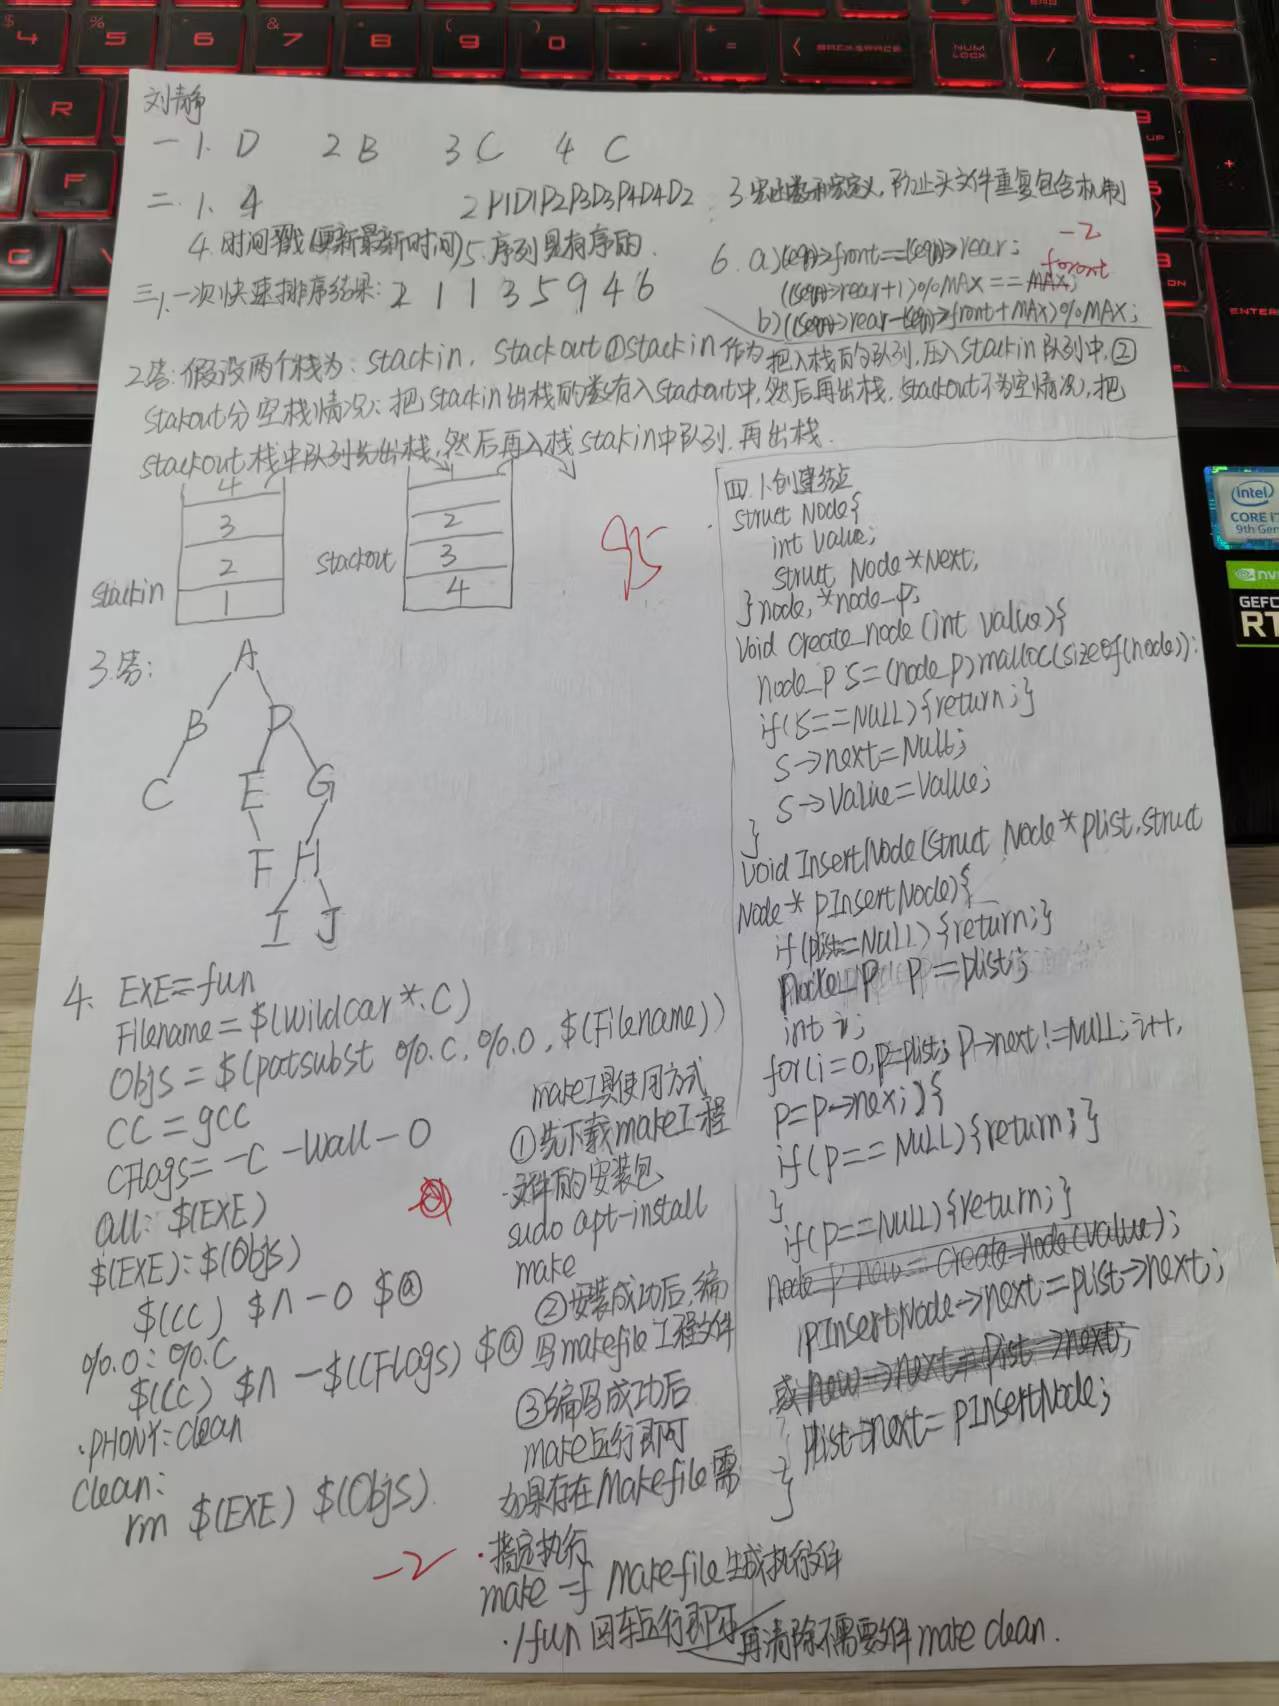 刘静
一 1. D 2 B 3 C 4 C
二. 1、4 2 P1D1P2P3D3P4D4D2 3 宏函数和宏定义,防止头文件重复包含机制
4. 时间戳(更新最新时间) 5. 序列是有序的.
6. a) (seq)->front==(seq)->rear;
-2
((seq)->rear+1)%MAX == MAX;
foront
b) ((seq)->rear-(seq)->front+MAX)%MAX;
三、1、一次快速排序结果: 2 1 1 3 5 9 4 6
2答:假设两个栈为: stackin, stackout ①stackin作为把入栈的队列,压入stackin队列中,②
stakout分空栈情况:把stackin出栈的数存入stackout中,然后再出栈,stackout不为空情况,把
stackout栈中队列先出栈,然后再入栈stakin中队列,再出栈.
4
3
2
1
stackin
1
2
3
4
stackout
95
3.答:
A
B D
C E G
F H
I J
4. EXE=fun
Filename = $(wildcar *.c)
Objs = $(patsubst %.c, %.o, $(Filename))
CC = gcc
CFlags= -c -wall -o
all: $(EXE)
$(EXE): $(Objs)
$(CC) $^ -o $@
%.o: %.c
$(CC) $^ -$(CFlags) $@
.PHONY: clean
clean:
rm $(EXE) $(Objs)
-2
make工具使用方式
①先下载make工程
文件的安装包
sudo apt-install
make
②安装成功后,编
写makefile工程文件
③编写成功后
make运行即可
如果存在Makefile需
指定执行
make -f makefile生成执行文件
./fun 回车运行即可 再清除不需要文件make clean.
四.1.创建结点
struct Node{
int value;
struct Node *Next;
}node, *node_p;
void create_node (int value){
node_p s = (node_p)malloc(sizeof(node));
if(s==NULL){return;}
s->next=NULL;
s->value=value;
}
void InsertNode(struct Node* plist, struct
Node* pInsertNode){
if(plist==NULL) {return;}
node_p p = plist;
int i;
for(i=0,p=plist; p->next!=NULL; i++,
p=p->nex;){
if(p==NULL){return;}
}
if(p==NULL){return;}
node_p new = create_node(value);
pInsertNode->next=plist->next;
或 new->next = plist->next;
plist->next= pInsertNode;
}
Intel
CORE i7
9th Gen
GEFC
RT
$ 4
% 5
6
& 7
* 8
( 9
) 0
-
+ =
BACKSPACE
NUM LOCK
/
R
F
ENTER